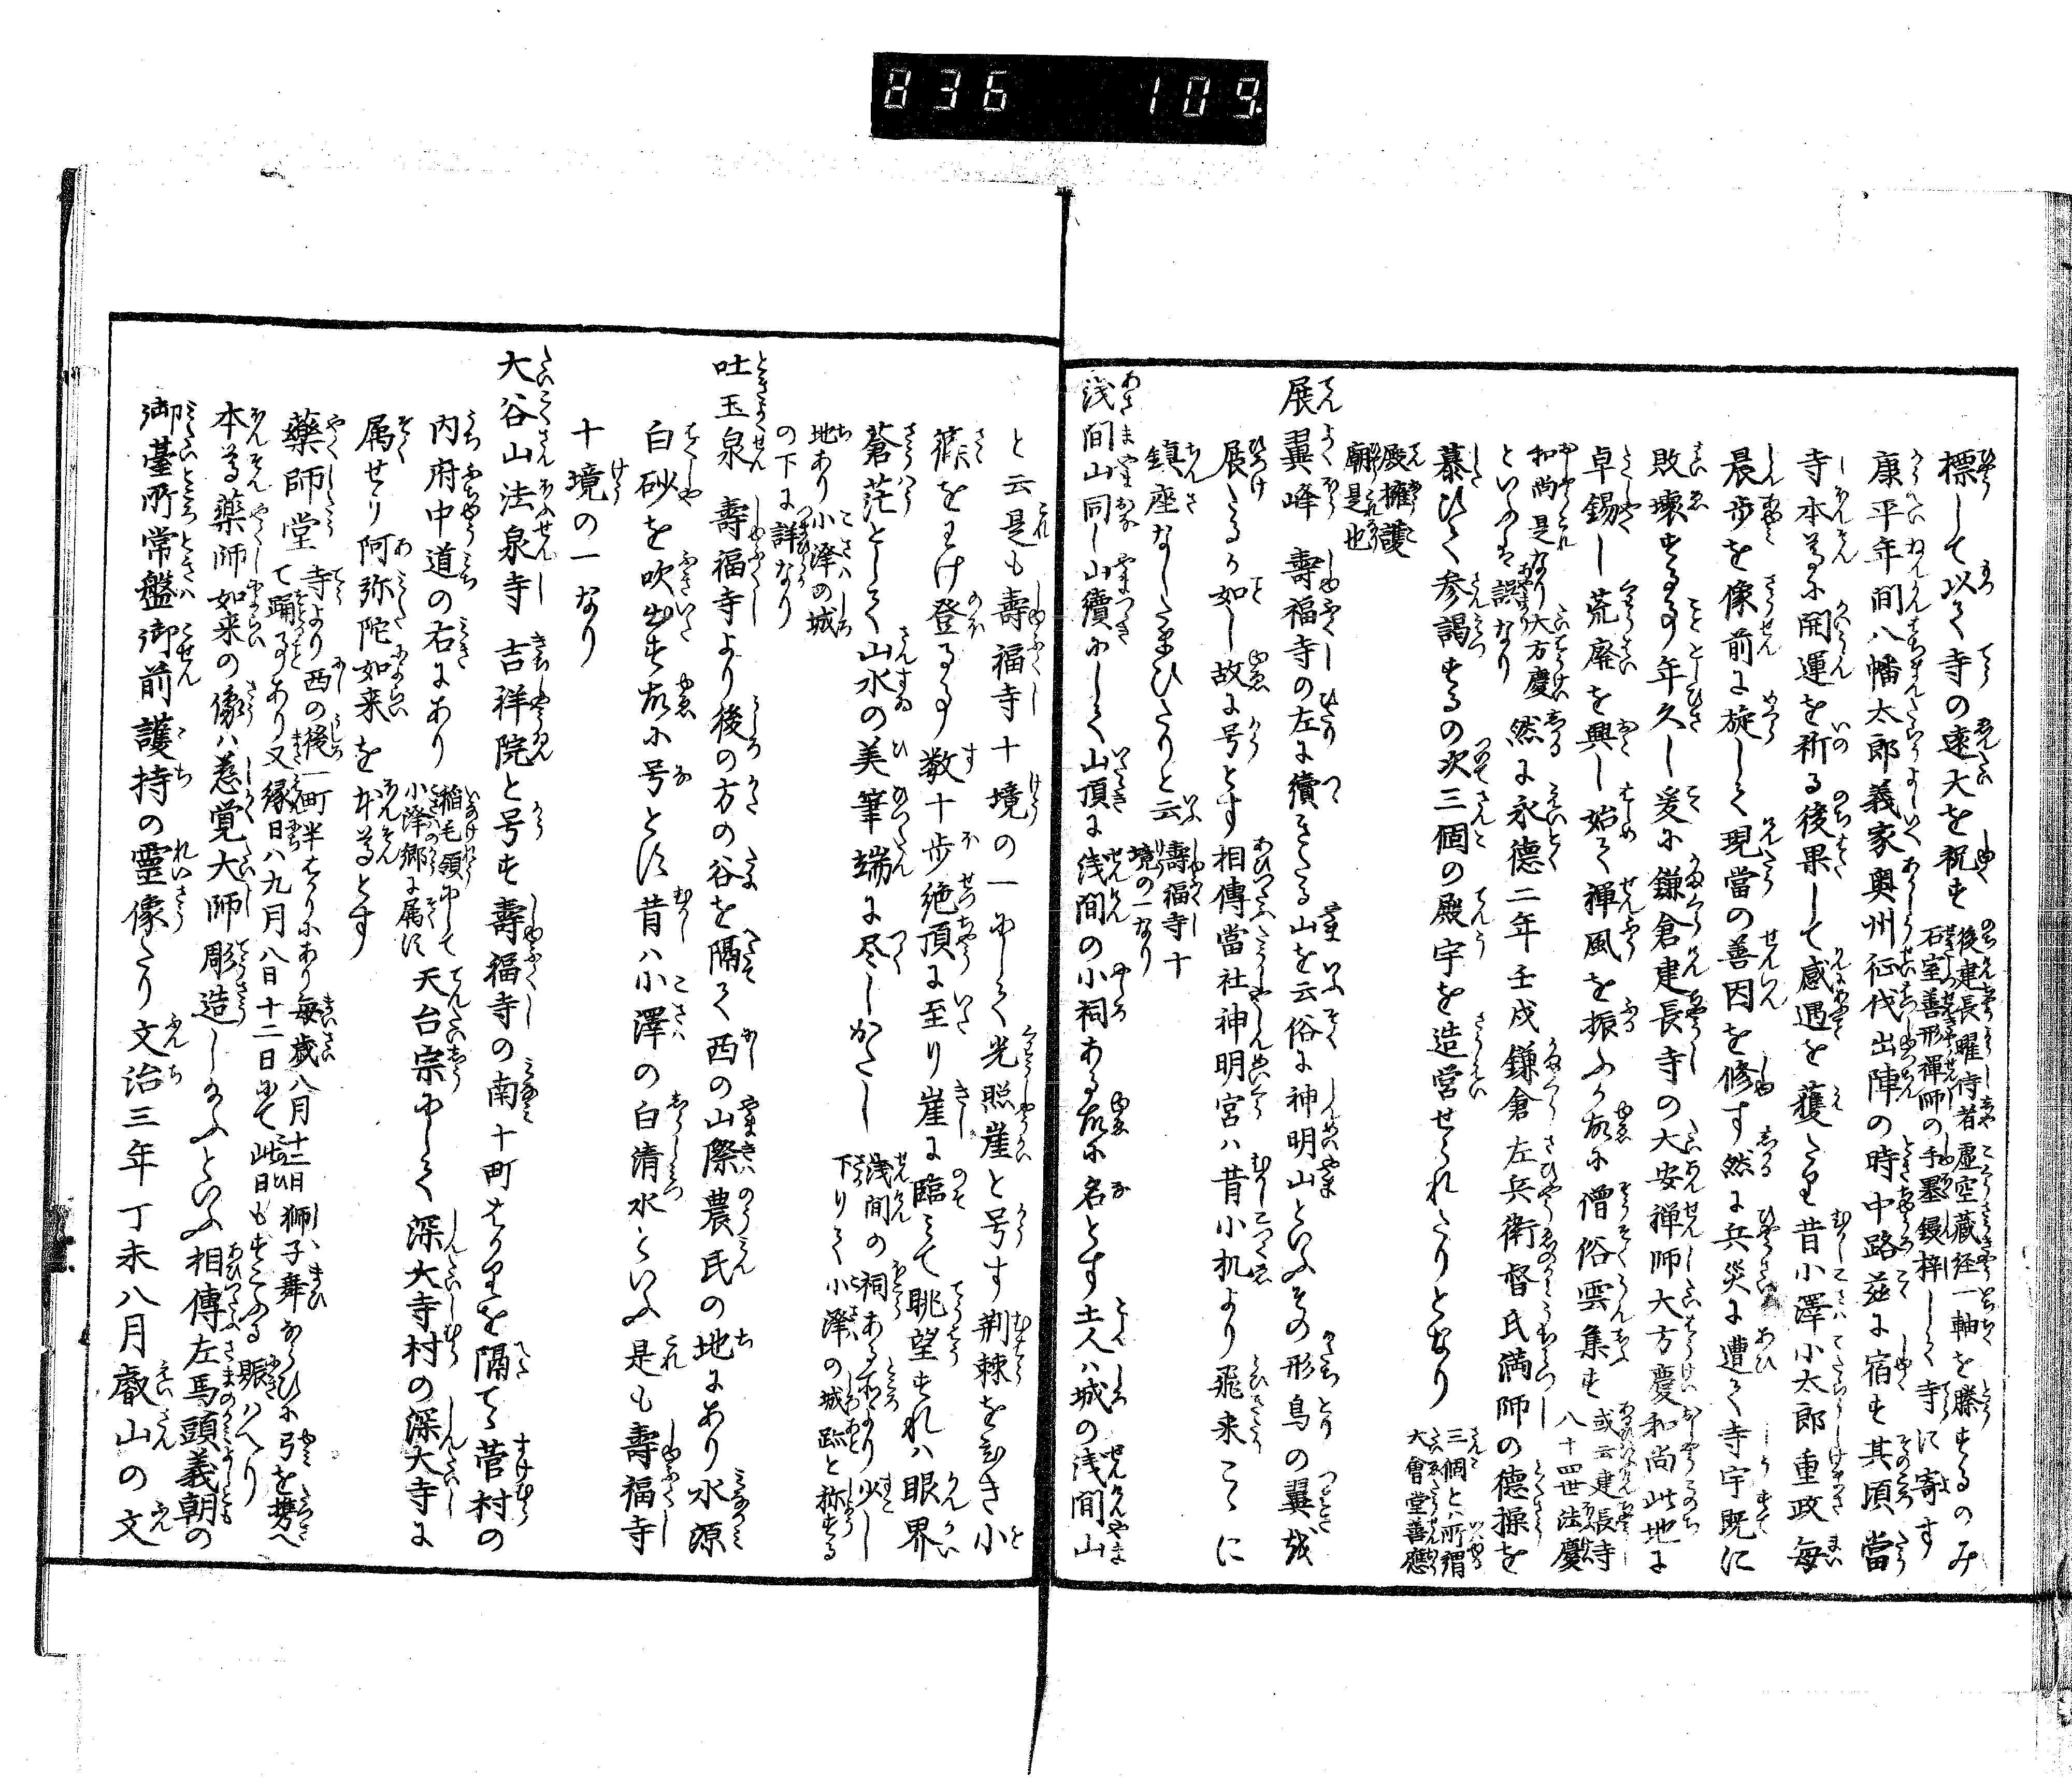 836 109
標して以て寺の遠大を祝す 後建長曜侍者虚空蔵経一軸を謄するのみ
石室善形禅師の手墨鋟梓して寺に寄す
康平年間八幡太郎義家奥州征伐出陣の時中路茲に宿す其頃當
寺本尊に開運を祈る後果して感遇を獲たり昔小澤小太郎重政毎
晨歩を像前に旋して現當の善因を修す然に兵災に遭て寺宇既に
敗壊する事年久し爰に鎌倉建長寺の大安禅師大方慶和尚此地に
卓錫し荒廃を興し始て禅風を振ふ故に僧俗雲集す 或云建長寺
八十四世法慶
和尚是なり大方慶
といふは誤なり
然に永徳二年壬戌鎌倉左兵衛督氏満師の徳操を
慕ひて参謁するの次三個の殿宇を造営せられたりとなり 三個とハ所謂
大會堂善應
殿擁護
廟是也
展翼峰 壽福寺の左に續きたる山を云俗に神明山といふその形鳥の翼を
展たるか如し故に号とす相傳當社神明宮ハ昔小机より飛来こゝに
鎮座なしたまひたりと云 壽福寺十
境の一なり
浅間山同し山續にして山頂に浅間の小祠ある故に名とす土人ハ城の浅間山
と云是も壽福寺十境の一にして光照崖と号す荊棘をひき小
篠をわけ登る事数十歩絶頂に至り崖に臨て眺望すれハ眼界
蒼茫として山水の美筆端に尽しかたし 浅間の祠ある所より少し
下りて小澤の城跡と称する
地あり小澤の城
の下に詳なり
吐玉泉 壽福寺より後の方の谷を隔て西の山際農民の地にあり水源
白砂を吹出す故に号とす昔ハ小澤の白清水といふ是も壽福寺
十境の一なり
大谷山法泉寺 吉祥院と号す壽福寺の南十町はかりを隔てゝ菅村の
内府中道の右にあり 稲毛領にして
小澤郷に属す
天台宗にして深大寺村の深大寺に
属せり阿弥陀如来を本尊とす
藥師堂 寺より西の後一町半はかりにあり毎歳八月十二日獅子舞ならひに弓を携へ
て踊る事あり又縁日ハ九月八日十二日にて此日もすこふる賑ハへり
本尊藥師如来の像ハ慈覚大師彫造し給ふといふ相傳左馬頭義朝の
御臺所常盤御前護持の靈像たり文治三年丁未八月叡山の文